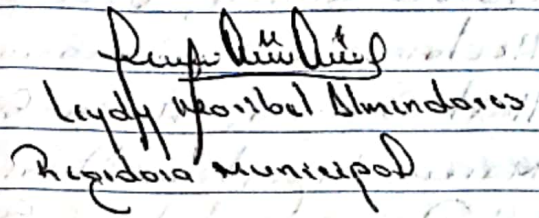 Leydy Maribel Almendares
Regidora Municipal